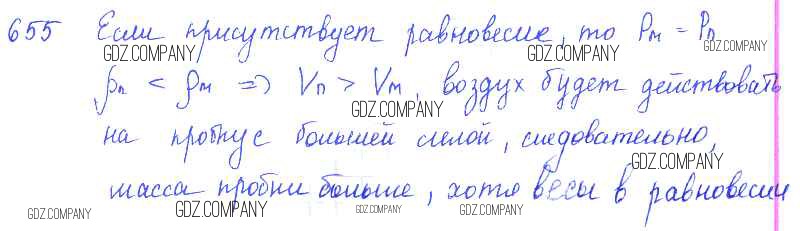 655 Если присутствует равновесие, то Pм = Pп
GDZ.COMPANY GDZ.COMPANY
ρп < ρм => Vп > Vм, воздух будет действовать
GDZ.COMPANY
на пробку с большей силой, следовательно,
GDZ.COMPANY
масса пробки больше, хотя весы в равновесии
GDZ.COMPANY GDZ.COMPANY GDZ.COMPANY GDZ.COMPANY